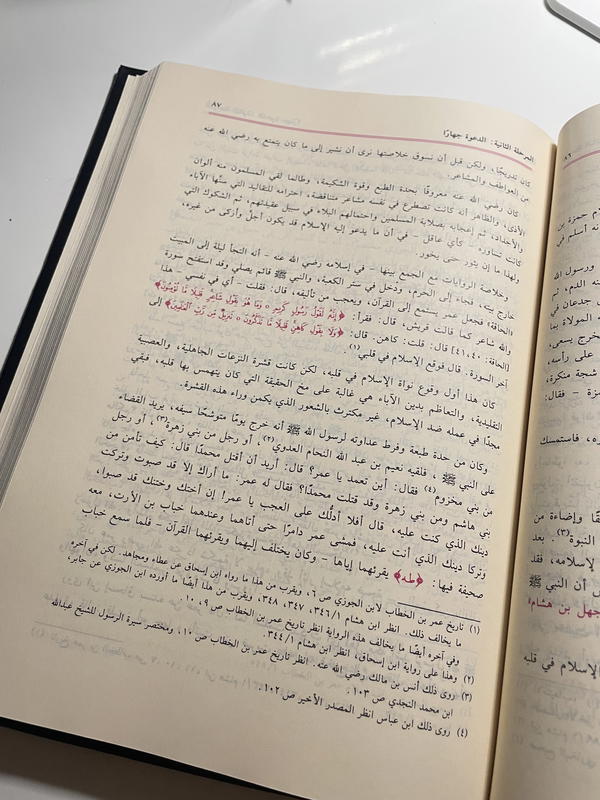 المرحلة الثانية: الدعوة جهارًا
٨٧
كان تدريجيًّا، ولكن قبل أن نسوق خلاصتها نرى أن نشير إلى ما كان يتمتع به رضي الله عنه
من العواطف والمشاعر.
كان رضي الله عنه معروفًا بحدة الطبع وقوة الشكيمة، وطالما لقي المسلمون منه ألوان
الأذى، والظاهر أنه كانت تصطرع في نفسه مشاعر متناقضة، احترامه للتقاليد التي سنّها الآباء
والأجداد، ثم إعجابه بصلابة المسلمين واحتمالهم البلاء في سبيل عقيدتهم، ثم الشكوك التي
كانت تساوره - كأي عاقل - في أن ما يدعو إليه الإسلام قد يكون أجلّ وأزكى من غيره،
ولهذا ما إن يثور حتى يخور.
وخلاصة الروايات مع الجمع بينها - في إسلامه رضي الله عنه - أنه التجأ ليلة إلى المبيت
خارج بيته، فجاء إلى الحرم، ودخل في ستر الكعبة، والنبي ﷺ قائم يصلي وقد استفتح سورة
«الحاقة» فجعل عمر يستمع إلى القرآن، ويعجب من تأليفه، قال: فقلت - أي في نفسي - هذا
والله شاعر كما قالت قريش، قال: فقرأ: ﴿إِنَّهُ لَقَوْلُ رَسُولٍ كَرِيمٍ ۝ وَمَا هُوَ بِقَوْلِ شَاعِرٍ قَلِيلًا مَّا تُؤْمِنُونَ﴾
[الحاقة: ٤٠، ٤١] قال: قلت: كاهن. قال: ﴿وَلَا بِقَوْلِ كَاهِنٍ قَلِيلًا مَّا تَذَكَّرُونَ ۝ تَنزِيلٌ مِّن رَّبِّ الْعَالَمِينَ﴾ إلى
آخر السورة. قال فوقع الإسلام في قلبي(١).
كان هذا أول وقوع نواة الإسلام في قلبه، لكن كانت قشرة النزعات الجاهلية، والعصبية
التقليدية، والتعاظم بدين الآباء هي غالبة على مخ الحقيقة التي كان يتهمس بها قلبه، فبقي
مجدًّا في عمله ضد الإسلام، غير مكترث بالشعور الذي يكمن وراء هذه القشرة.
وكان من حدة طبعه وفرط عداوته لرسول الله ﷺ أنه خرج يومًا متوشحًا سيفه، يريد القضاء
على النبي ﷺ، فلقيه نعيم بن عبد الله النحام العدوي(٢)، أو رجل من بني زهرة(٣)، أو رجل
من بني مخزوم(٤) فقال: أين تعمد يا عمر؟ قال: أريد أن أقتل محمدًا. قال: كيف تأمن من
بني هاشم ومن بني زهرة وقد قتلت محمدًا؟ فقال له عمر: ما أراك إلا قد صبوت وتركت
دينك الذي كنت عليه، قال أفلا أدلّك على العجب يا عمر! إن أختك وختنك قد صبوا،
وتركا دينك الذي أنت عليه، فمشى عمر دامرًا حتى أتاهما وعندهما خباب بن الأرت، معه
صحيفة فيها: ﴿طه﴾ يقرئهما إياها - وكان يختلف إليهما ويقرئهما القرآن - فلما سمع خباب
(١) تاريخ عمر بن الخطاب لابن الجوزي ص ٦، ويقرب من هذا ما رواه ابن إسحاق عن عطاء ومجاهد. لكن في آخره
ما يخالف ذلك. انظر ابن هشام ٣٤٦/١، ٣٤٧، ٣٤٨، ويقرب من هذا أيضًا ما أورده ابن الجوزي عن جابر،
وفي آخره أيضًا ما يخالف هذه الرواية انظر تاريخ عمر بن الخطاب ص ٩، ١٠.
(٢) وهذا على رواية ابن إسحاق، انظر ابن هشام ٣٤٤/١.
(٣) روى ذلك أنس بن مالك رضي الله عنه. انظر تاريخ عمر بن الخطاب ص ١٠، ومختصر سيرة الرسول للشيخ عبدالله
ابن محمد النجدي ص ١٠٣.
(٤) روى ذلك ابن عباس انظر المصدر الأخير ص ١٠٢.
٨٦
م حمزة بن
أنه أسلم في
ورسول الله
نه الدم، ثم
جدعان في
ه المولاة بما
خرج يسعى،
على رأسه،
شجة منكرة،
مزة - فقال:
ه، فاستمسك
قًا وإضاءة من
النبوة(٣). بعد
لإسلامه، فقد
س أن النبي ﷺ
جهل بن هشام
لإسلام في قلبه